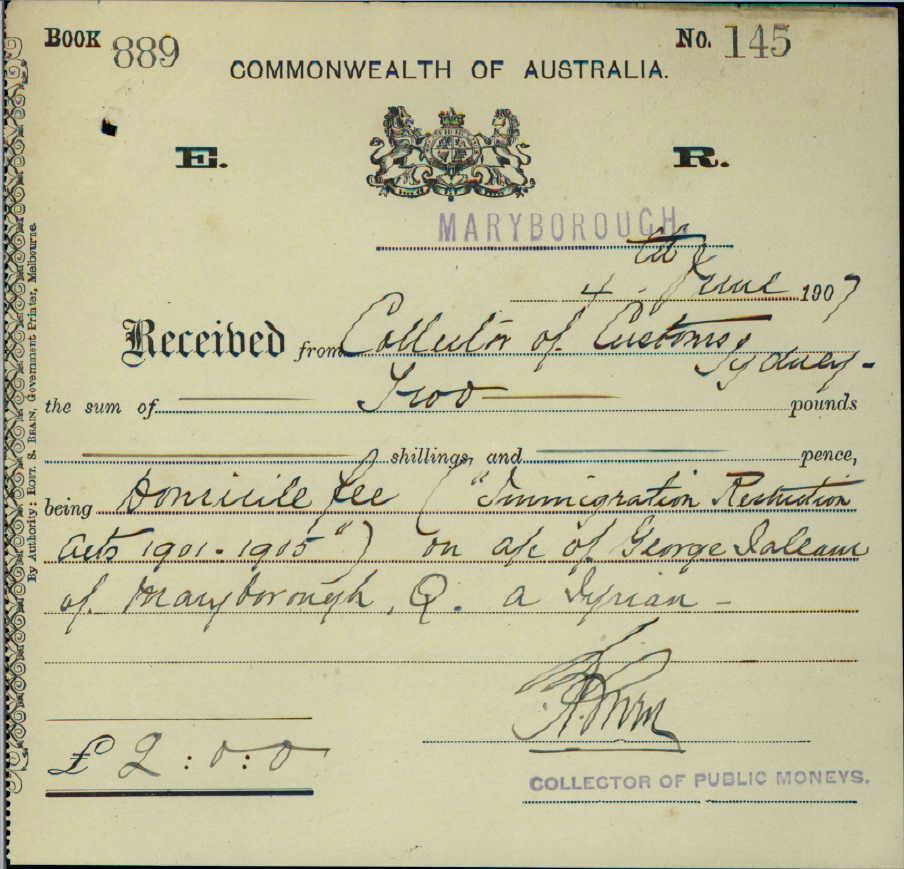 BOOK 889 No. 145
COMMONWEALTH OF AUSTRALIA.
E. R.
MARYBOROUGH
4th June 1907
Received from Collector of Customs Sydney-
the sum of Two pounds
shillings, and pence,
being Domicile fee ("Immigration Restriction
Acts 1901-1905") on a/c of George
of Maryborough, Q. a Syrian -
£ 2:0:0
COLLECTOR OF PUBLIC MONEYS.
By Authority: ROBT. S. BRAIN, Government Printer, Melbourne.